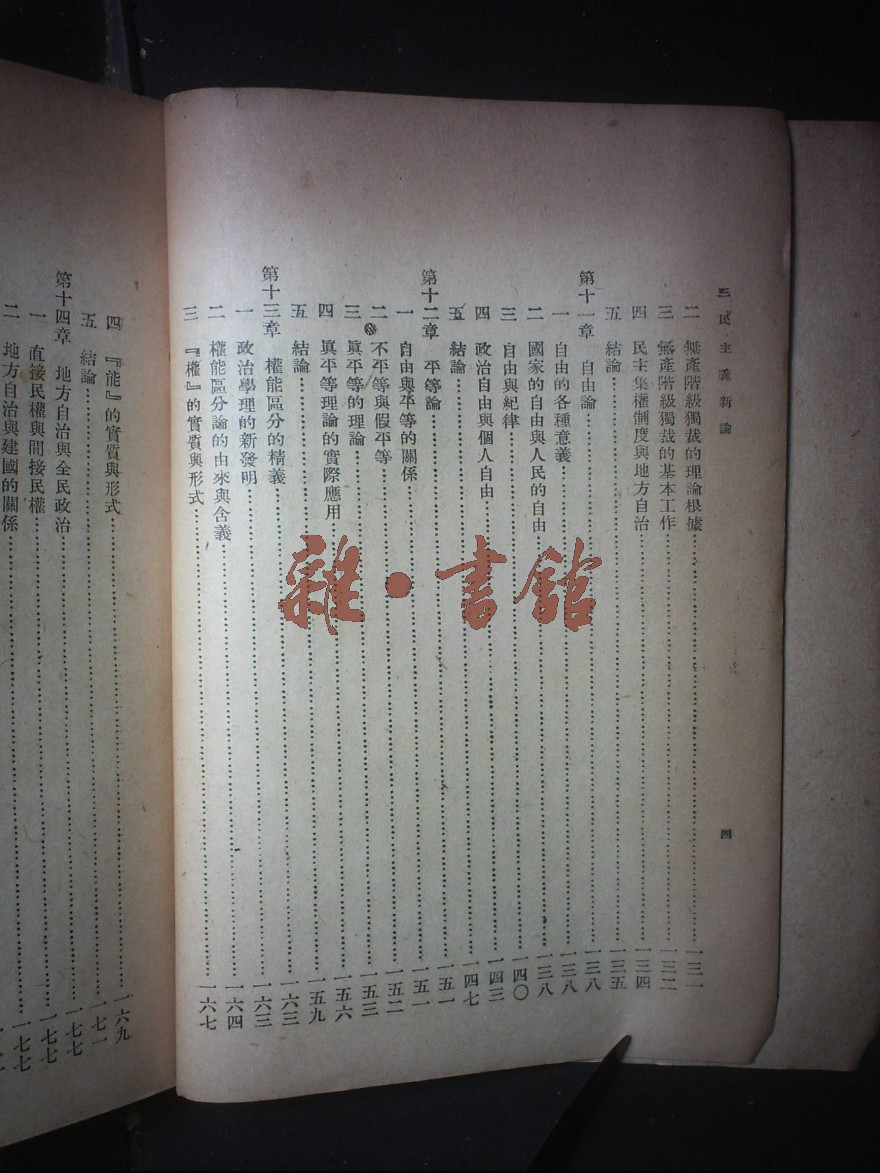 三民主義新論
四
二 無產階級獨裁的理論根據……一三一
三 無產階級獨裁的基本工作……一三二
四 民主集權制度與地方自治……一三四
五 結論……一三五
第十一章 自由論……一三八
一 自由的各種意義……一三八
二 國家的自由與人民的自由……一三八
三 自由與紀律……一四〇
四 政治自由與個人自由……一四三
五 結論……一四七
第十二章 平等論……一五一
一 自由與平等的關係……一五一
二 不平等與假平等……一五二
三 眞平等的理論……一五三
四 眞平等理論的實際應用……一五六
五 結論……一五九
第十三章 權能區分的精義……一六三
一 政治學理的新發明……一六三
二 權能區分論的由來與含義……一六四
三 『權』的實質與形式……一六七
四 『能』的實質與形式……一六九
五 結論……一七一
第十四章 地方自治與全民政治……一七七
一 直接民權與間接民權……一七七
二 地方自治與建國的關係……一七七
雜·書館